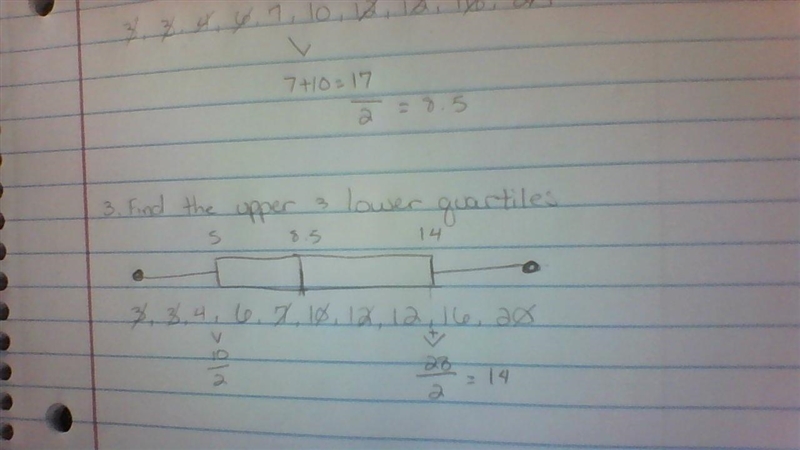 3, 3, 4, 6, 7, 10, 12, 12,
7+10=17
2 = 8.5
3. Find the upper & lower quartiles
5 8.5 14
3, 3, 4, 6, 7, 10, 12, 12, 16, 20
+
10 28
2 2 = 14